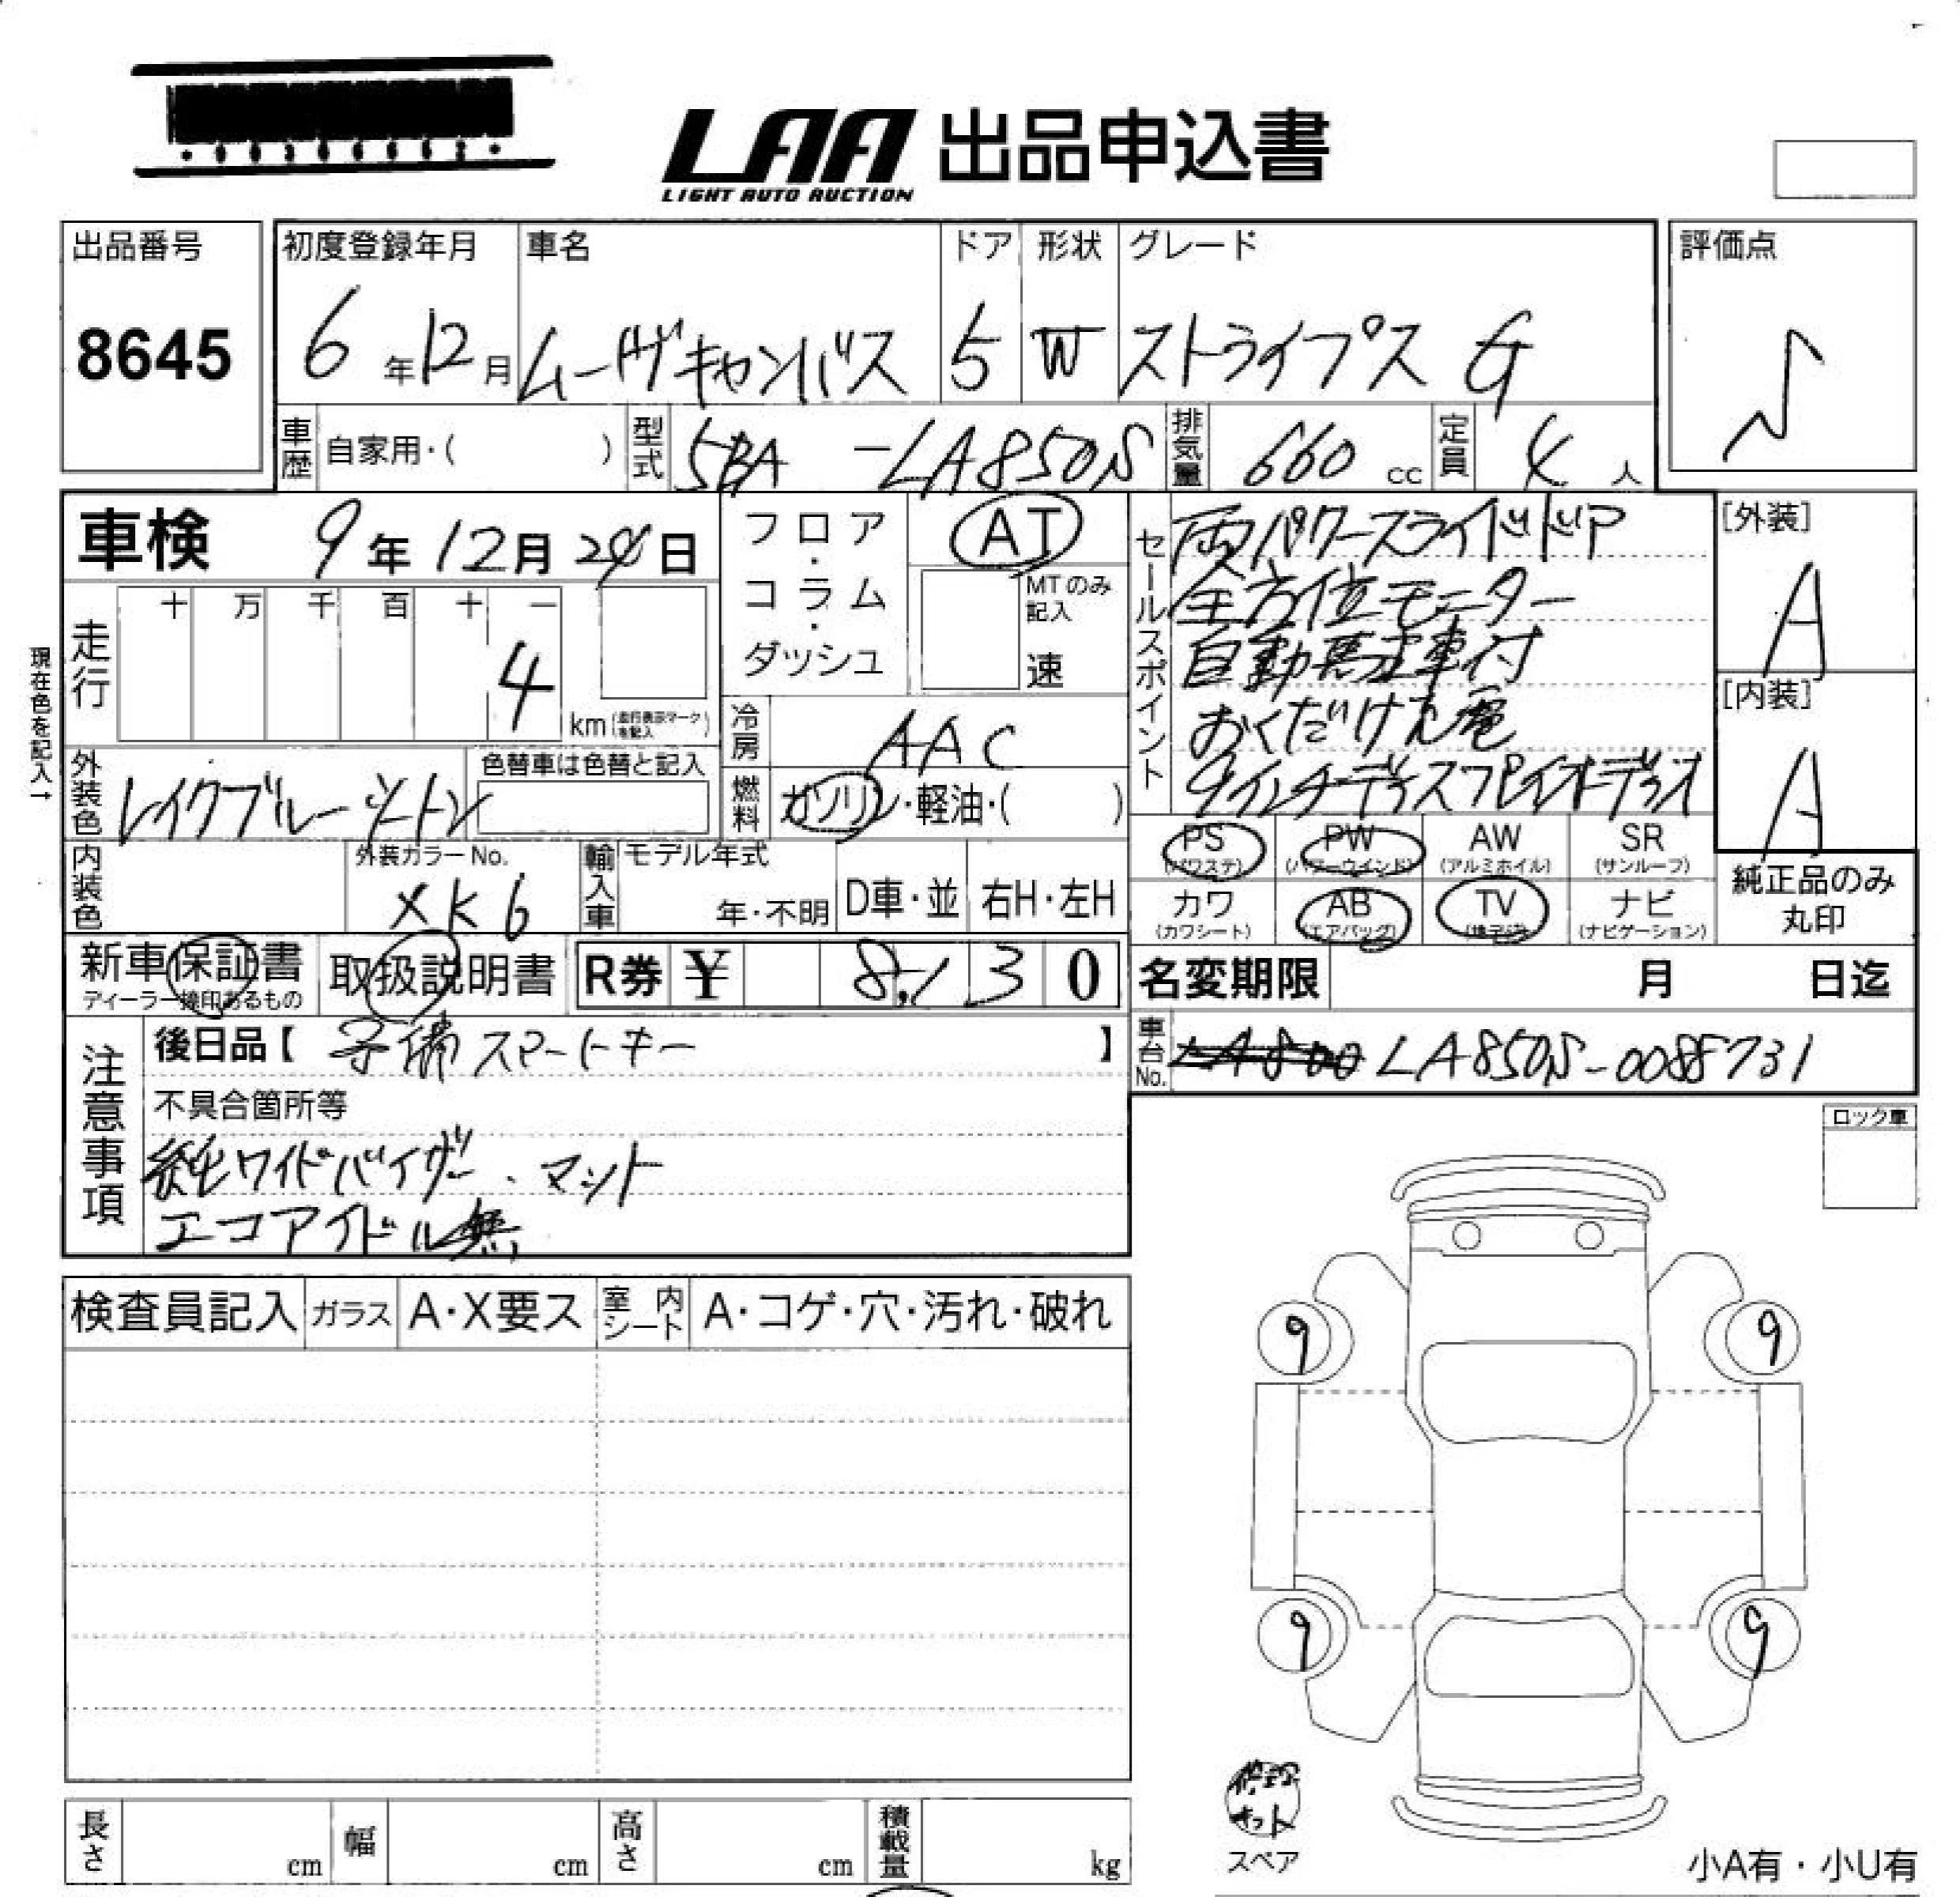 LAA 出品申込書
LIGHT AUTO AUCTION
出品番号 8645
初度登録年月 6年12月
車名 ムーヴキャンバス
ドア 5
形状 W
グレード ストライプス G
評価点 S
車歴 自家用・( )
型式 5BA -LA850S
排気量 660 cc
定員 4 人
車検 9年12月24日
フロア・コラム・ダッシュ
AT
MTのみ記入
速
セールスポイント
両パワースライドドア
全方位モニター
自動駐車付
おくだけ充電
9インチディスプレイオーディオ
[外装] A
[内装] A
現在色を記入→
走行 十 万 千 百 十 一
4 km (走行表示マークを記入)
冷房 AAC
燃料 ガソリン・軽油・( )
外装色 レイクブルー ツートン
色替車は色替と記入
内装色
外装カラーNo. XK6
輸入車 モデル年式 年・不明
D車・並 右H・左H
PS (パワステ) PW (パワーウインド) AW (アルミホイル) SR (サンルーフ)
カワ (カワシート) AB (エアバッグ) TV (地デジ) ナビ (ナビゲーション)
純正品のみ丸印
新車保証書 ディーラー捺印あるもの
取扱説明書
R券 ¥ 8,130
名変期限 月 日迄
注意事項
後日品【 予備スマートキー 】
車台No. LA850S-0088731
不具合箇所等
純正ワイドバイザー、マット
エコアイドル無
ロック車
検査員記入 ガラス A・X要ス 室内シート A・コゲ・穴・汚れ・破れ
9 9
9 9
修理キット
スペア
長さ cm 幅 cm 高さ cm 積載量 kg
小A有・小U有